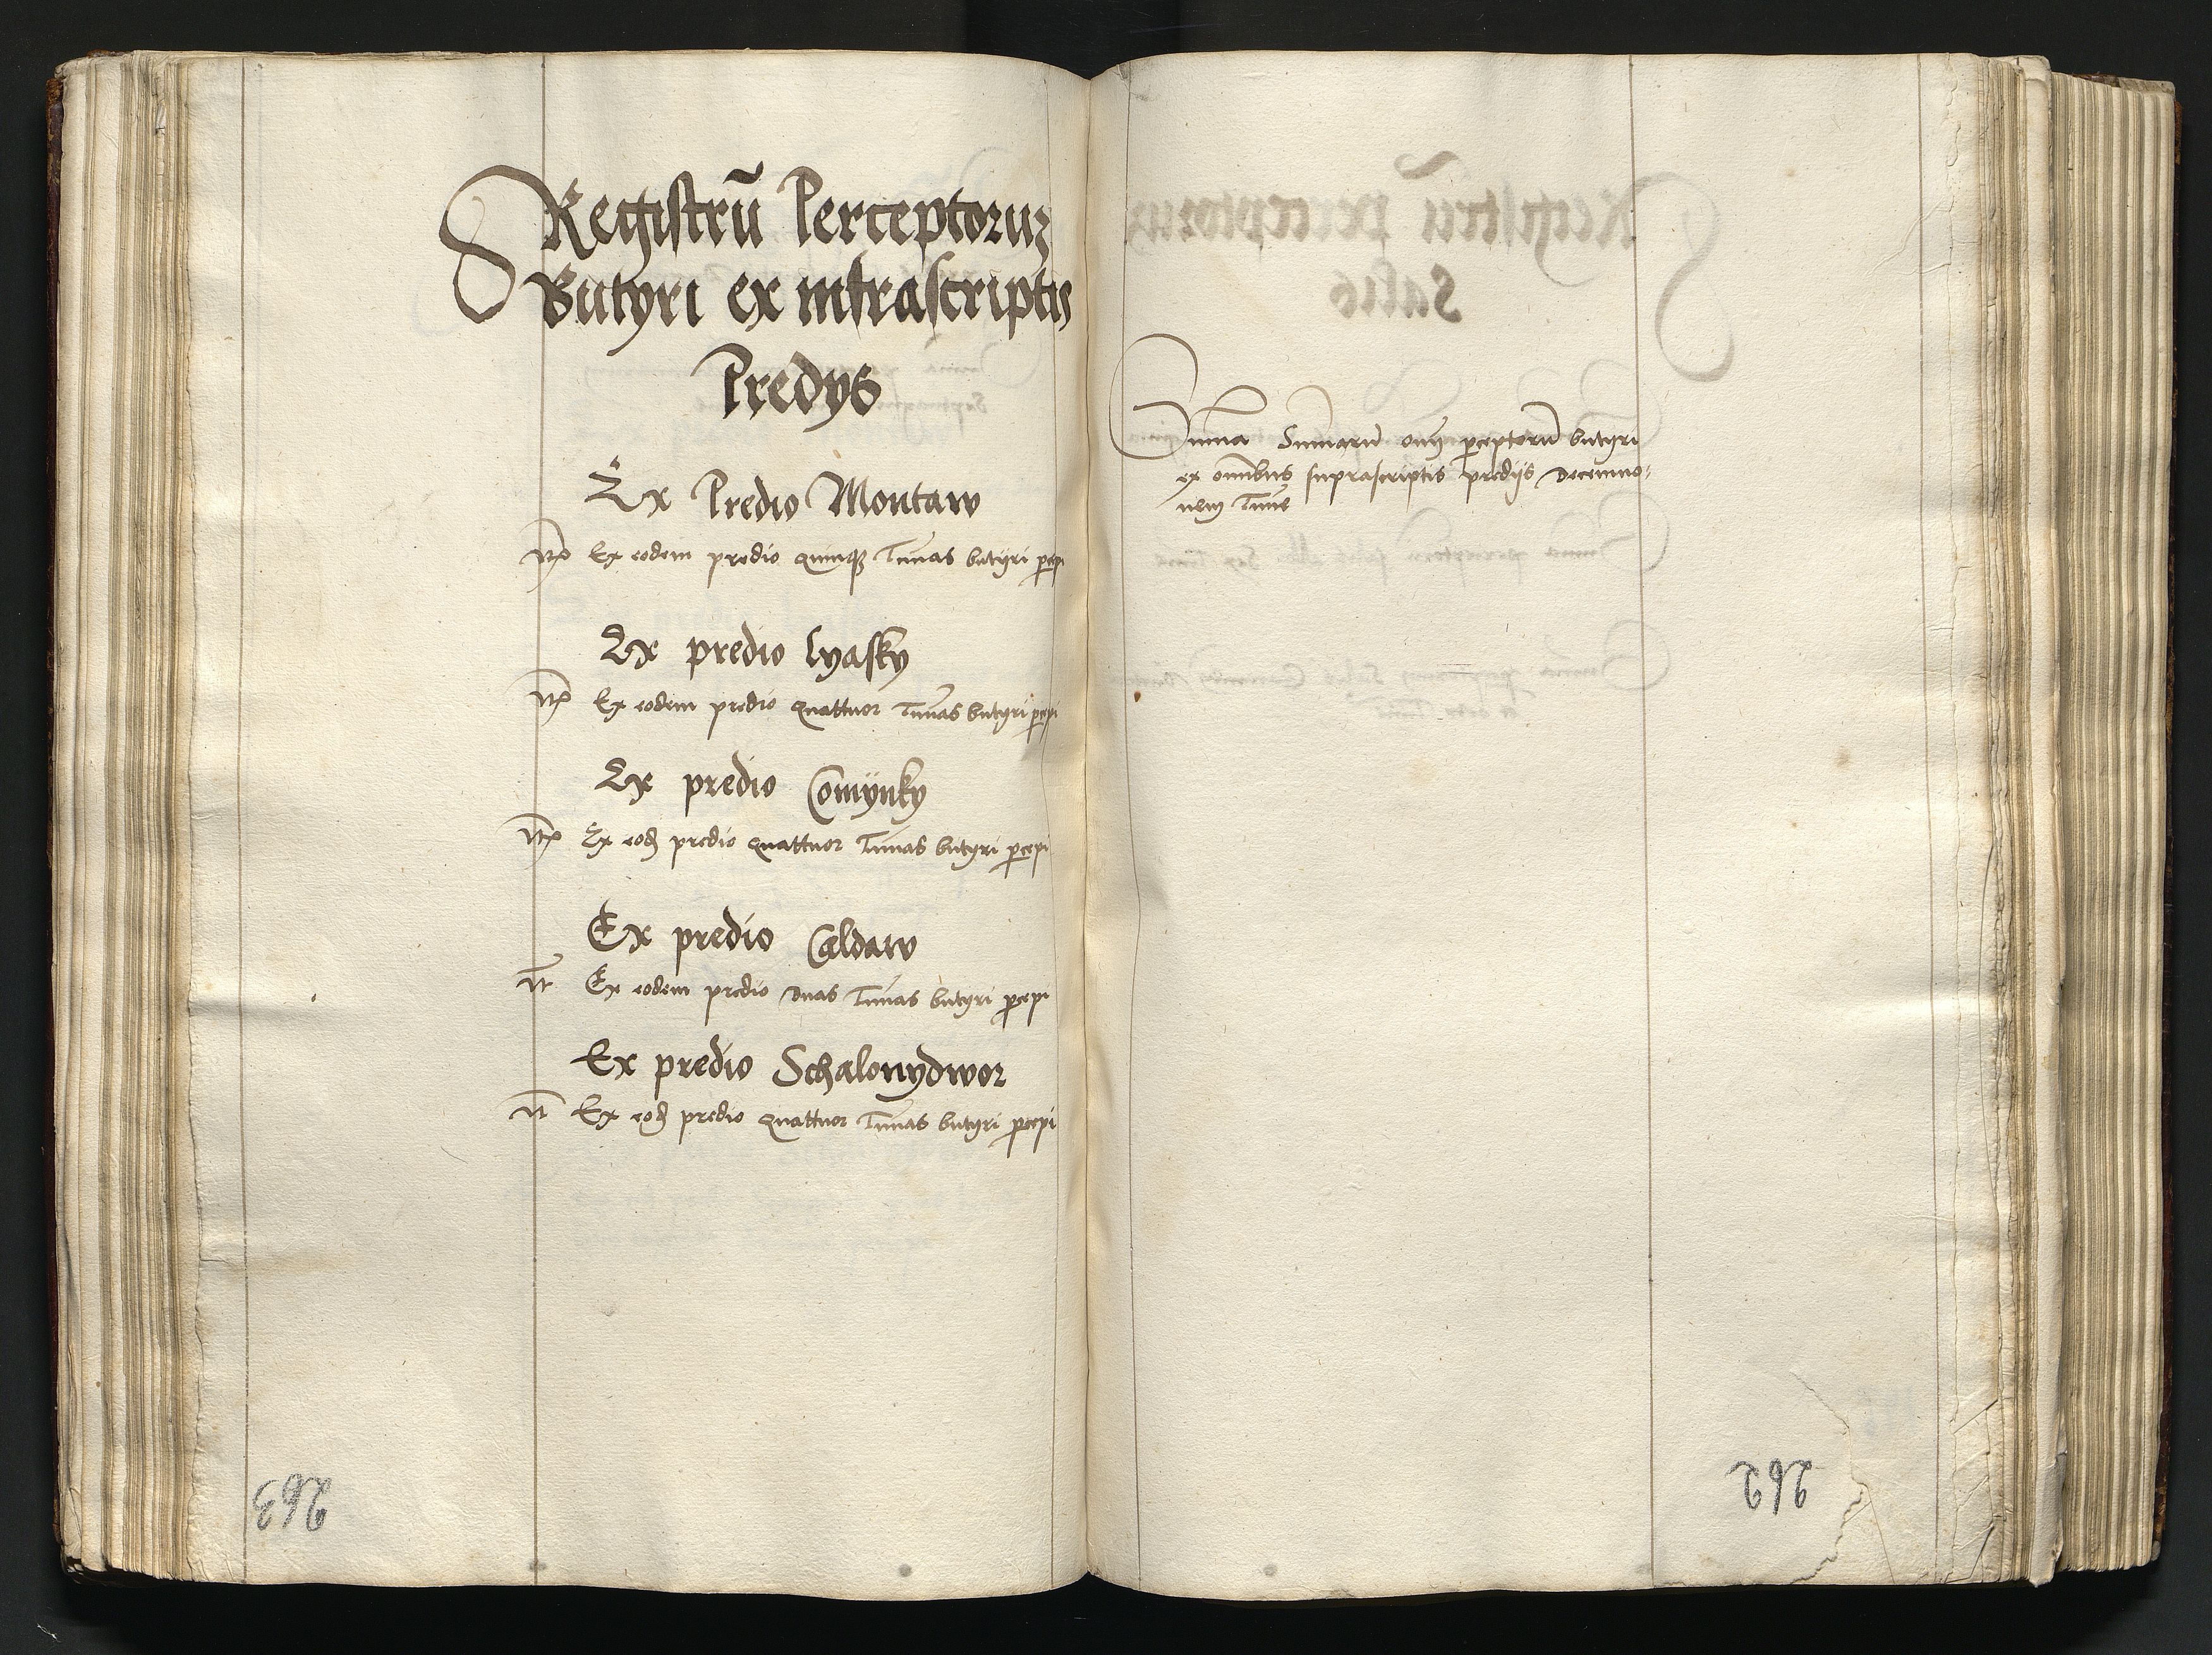 Registrū Perceptoruʒ
Butyri ex infrascriptis
Predys
Ex Predio Montaw
Itē Ex eodem predio quinqꝫ Tūnas butyri ꝑcepi
Ex predio Lyasky
Itē Ex eodem predio quattuor Tūnas butyri ꝑcepi
Ex predio Comÿnky
Itē Ex eod predio quattuor Tūnas butyri ꝑcepi
Ex predio Caldaw
It Ex eodem predio duas Tūnas butyri ꝑcepi
Ex predio Schalonydwor
It Ex eod predio quattuor Tūnas butyri ꝑcepi
263
Sūma Sūmarū oīm ꝑceptorū butyri
ex omībus suprascriptis predijs decemno-
uem Tūne
262